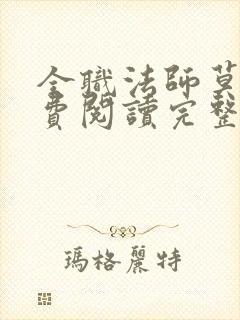 全職法師莫
費閱讀完整
瑪格麗特